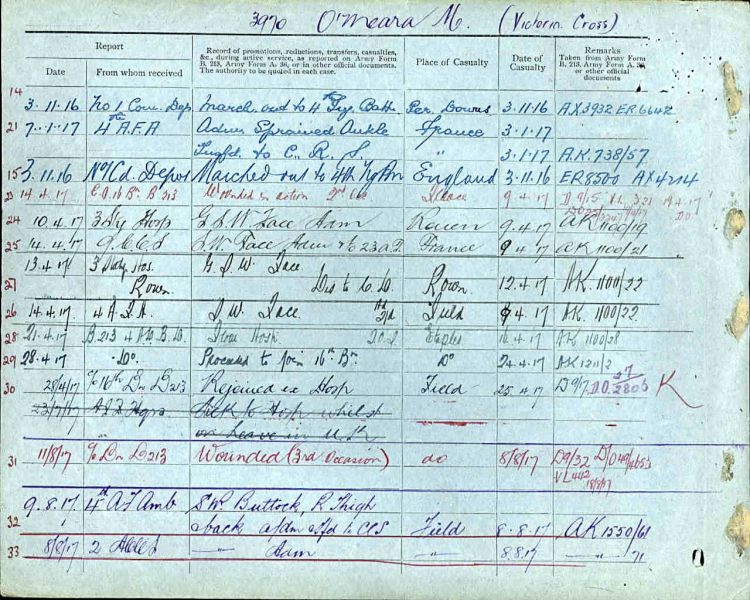 3970 O'Meara M. (Victoria Cross)
Report
Record of promotions, reductions, transfers, casualties, &c., during active service, as reported on Army Form B. 213, Army Form A. 36, or in other official documents. The authority to be quoted in each case.
Place of Casualty
Date of Casualty
Remarks
Taken from Army Form B. 213, Army Form A. 36, or other official documents.
Date
From whom received
14
3.11.16 No 1 Com. Dep. March. out to 4th Tg Batt. Per Downs 3.11.16 AX3932 ER6642
21 7.1.17 4th A.F.A Adm Sprained Ankle France 3.1.17
Tnsfd to C. R. S. " 3.1.17 A.K. 738/57
15 3.11.16 No 1 Cd. Depot Marched out to 4th Tg Bn England 3.11.16 ER8500 AX4214
23 14.4.17 16 Bn. B 213 Wounded in action 2nd 9.4.17 D 9/15
24 10.4.17 3 Sty Hosp G.S.W Face Adm Rouen 9.4.17 AK 1100/19
25 14.4.17 9 CCS S.W. Face Adm to 23 A.T. France 9.4.17 AK 1100/21
13.4.17 3 Hos. G.S.W. Face
27 Rouen Dis to C. D. Rouen 12.4.17 AK. 1100/22
26 14.4.17 4 A.F.A. S.W. Face Field 9.4.17 AK. 1100/22
28 21.4.17 B.213 4 From Hosp Etaples 16.4.17 AK 1100/28
29 28.4.17 Do. Proceeded to join 16th Bn Do 24.4.17 AK 1211/2
30 28/4/17 16th Bn B213 Rejoined ex Hosp Field 25.4.17 D9/ 27 D.O. 2803 K
23/7/17 A.I.F. Hqrs Sick to Hosp whilst
" on leave in U.K
31 11/8/17 Bn B213 Wounded (3rd Occasion) do 8/8/17 D9/32 D/049/4655
VL4412 18/8/17
9.8.17 4th A F Amb SW Buttock, R Thigh
32 back adm tfd to CCS Field 8.8.17 AK1550/61
33 8/8/17 2 ACCS — " — Adm — " — 8.8.17 — " — 71